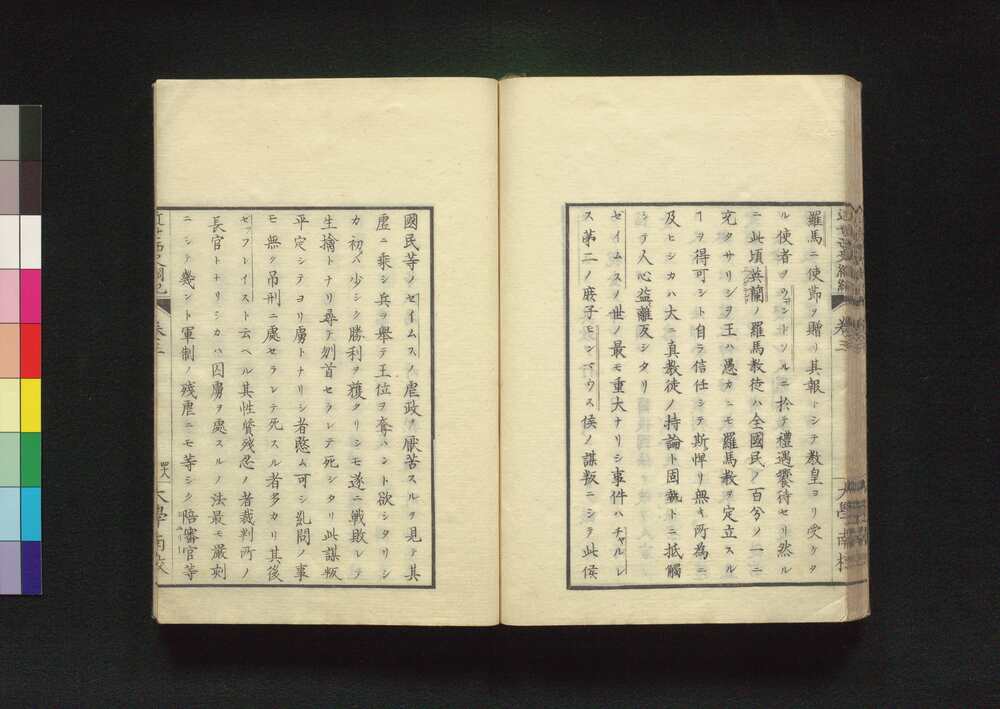 羅馬ニ使節ヲ贈リ其報トシテ教皇ヨリ受ケタ
ル使者ヲウヰントソルニ於テ禮遇饗待セリ然ル
ニ此頃英蘭ノ羅馬教徒ハ全國民ノ百分ノ一ニ
充タサリシヲ王ハ愚カニモ羅馬教ヲ定立スル
ヿヲ得可シト自ラ信任シテ斯憚リ無キ所為ニ
及ヒシカハ大ニ真教徒ノ持論ト固執トニ抵觸
シテ人心益離反シタリ
セイムスノ世ノ最モ重大ナリシ事件ハチャルレ
ス第二ノ庶子モンマウス侯ノ謀叛ニシテ此侯
國民等ノセイムスノ虐政ヲ厭苦スルヲ見テ其
虛ニ乘シ兵ヲ舉テ王位ヲ奪ハント欲シタリシ
カ初メハ少シク勝利ヲ獲タリシモ遂ニ戰敗レテ
生擒トナリ尋テ刎首セラレテ死シタリ此謀叛
平定シテヨリ虜トナリシ者愍ム可シ亂問ノ事
モ無ク吊刑ニ處セラレテ死スル者多カリ其後
セッフレイスト云ヘル其性質残忍ノ者裁判所ノ
長官トナリシカハ囚虜ヲ處スルノ法最モ嚴刻
ニシテ幾ント軍制ノ残虐ニモ等シク陪審官等
卷三
大學南校